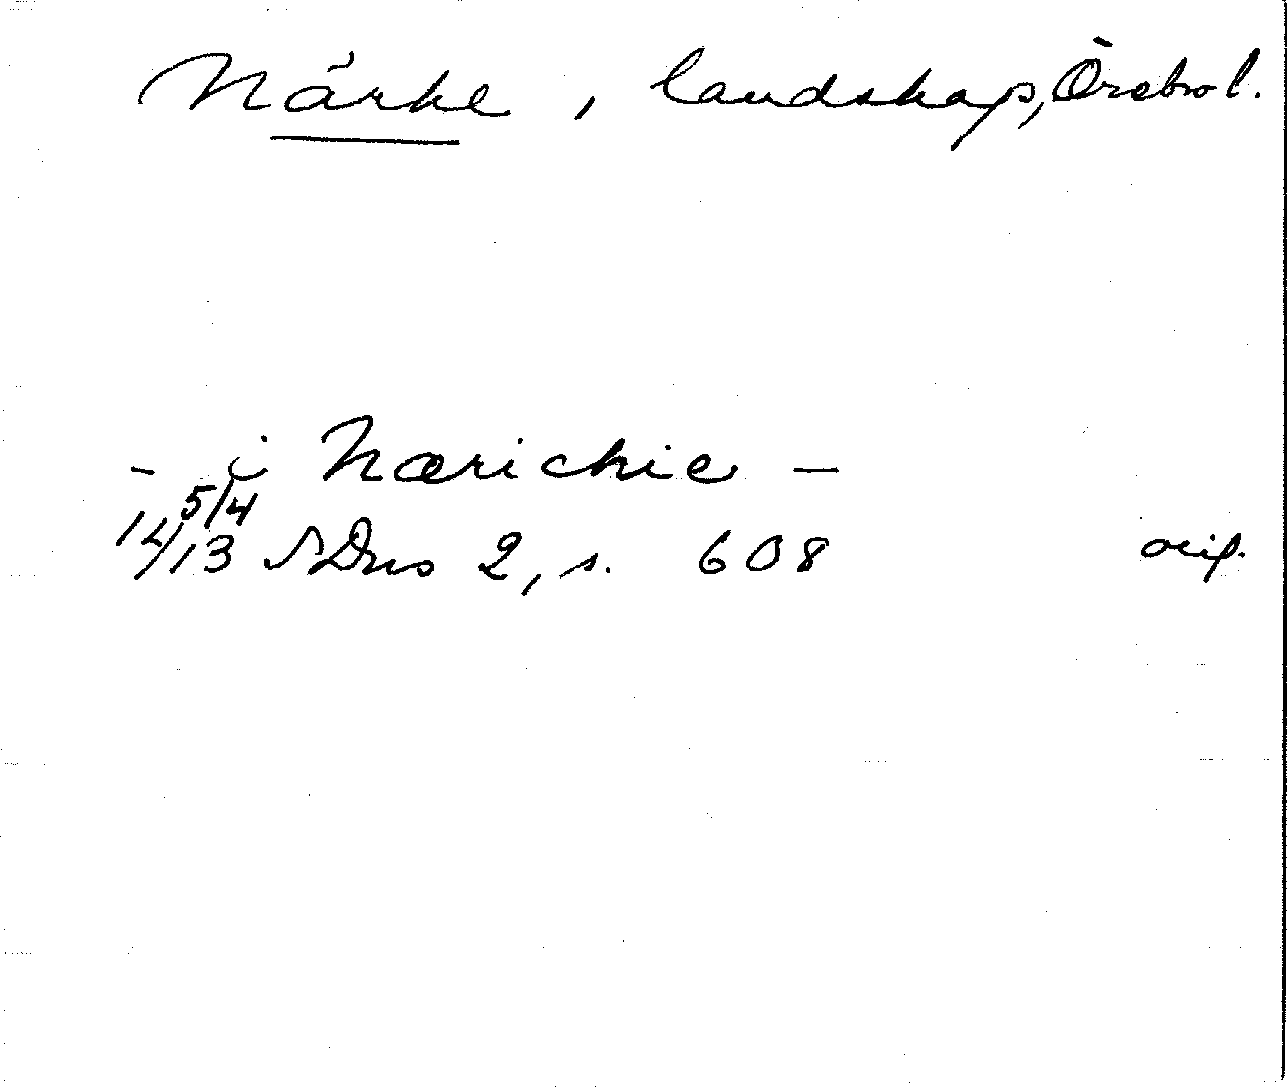 Närke, landskap, Örebro l.
- i Nærichie -
5/4
14/13 SDns 2, s. 608 orig.